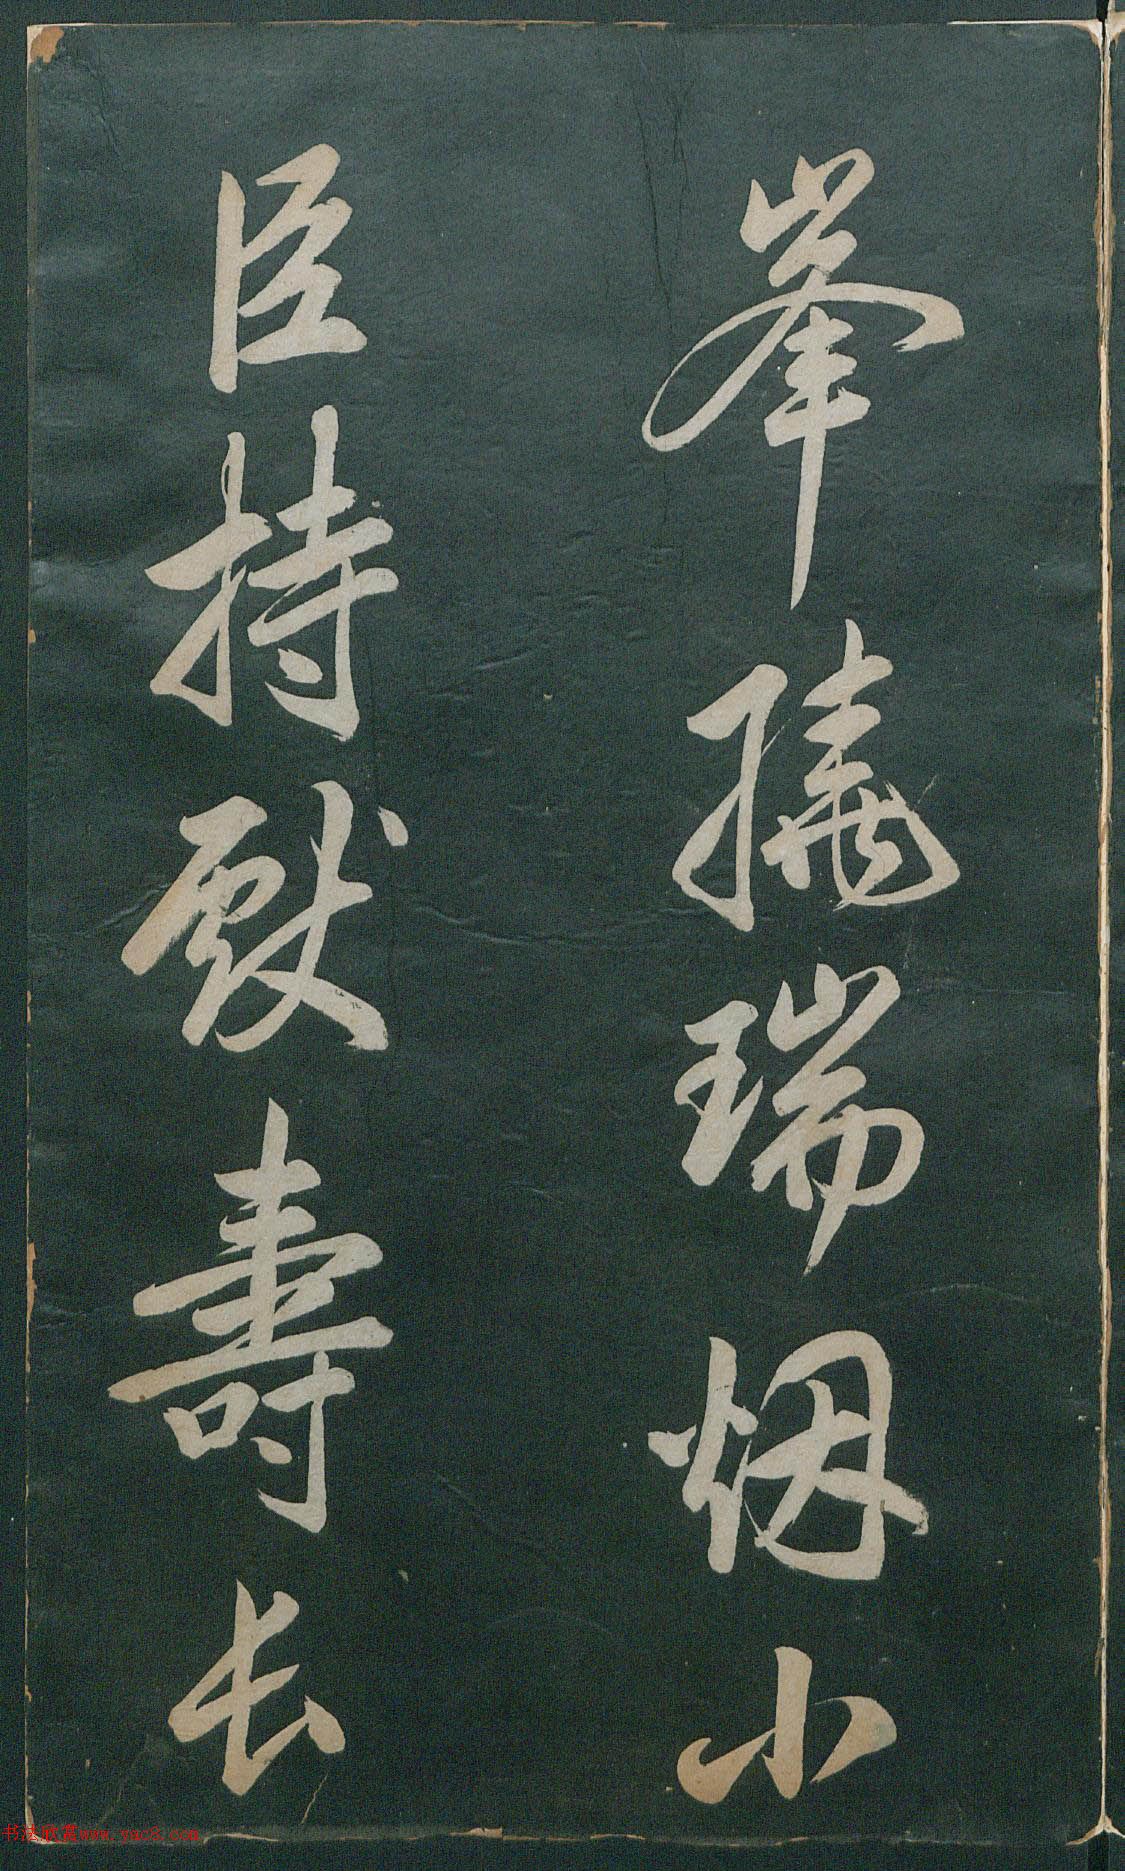 峯繞瑞烟小
臣持獻壽長
书法欣赏www.yac8.com